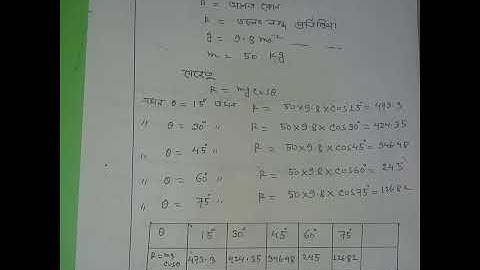 θ = আনত কোণ
R = তলের লম্ব প্রতিক্রিয়া
g = 9.8 ms⁻²
m = 50 kg
যেহেতু
R = mg cosθ
যখন θ = 15° তখন R = 50×9.8×cos15° = 473.3
" θ = 30° " R = 50×9.8×cos30° = 424.35
" θ = 45° " R = 50×9.8×cos45° = 346.48
" θ = 60° " R = 50×9.8×cos60° = 245
" θ = 75° " R = 50×9.8×cos75° = 126.82
θ 15° 30° 45° 60° 75°
R = mg cosθ 473.3 424.35 346.48 245 126.82